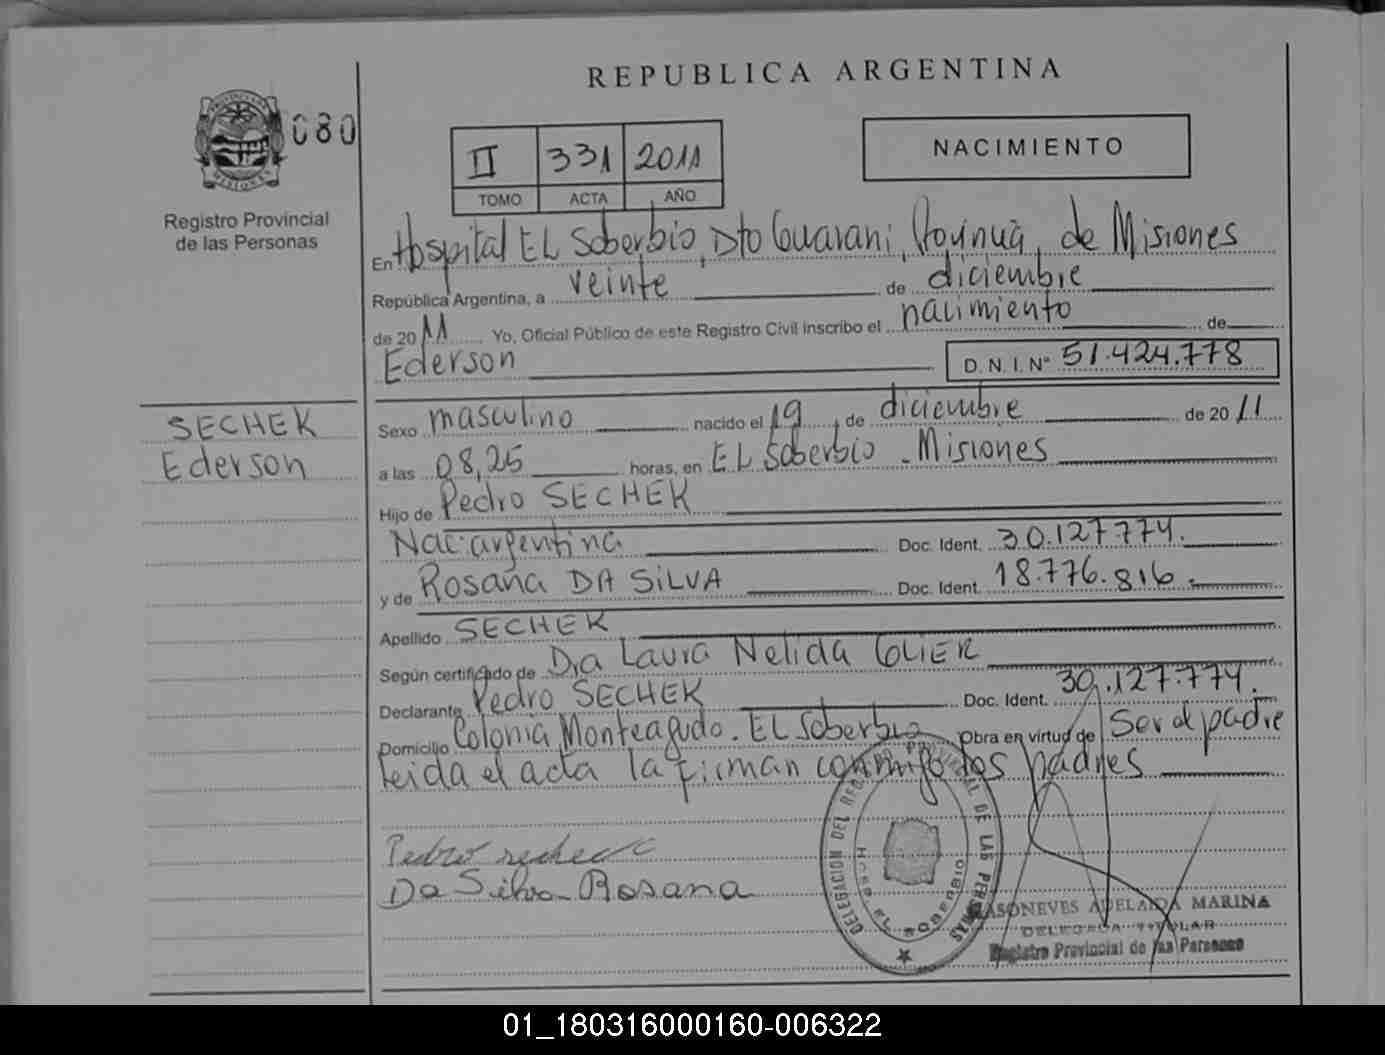 REPUBLICA ARGENTINA
080
II 331 2011
TOMO ACTA AÑO
NACIMIENTO
Registro Provincial
de las Personas
En Hospital EL Soberbio, Dto Guarani, de Misiones
República Argentina, a veinte de diciembre
de 2011 Yo, Oficial Público de este Registro Civil inscribo el nacimiento de
Ederson D. N. I. Nº 51.424.778
SECHEK
Ederson
Sexo masculino nacido el 19 de diciembre de 2011
a las 08,25 horas, en EL Soberbio - Misiones
Hijo de Pedro SECHEK
Nac. argentina Doc. Ident. 30.127.774.
y de Rosana DA SILVA Doc. Ident. 18.776.816.
Apellido SECHEK
Según certificado de Dra Laura Nelida GLIER
Declarante Pedro SECHEK Doc. Ident. 30.127.774.
Domicilio Colonia Monteagudo. EL Soberbio Obra en virtud de Ser el padre
leida el acta la firman conmigo los padres
Pedro sechek
Da Silva Rosana
DELEGACION DEL REGISTRO PROVINCIAL DE LAS PERSONAS
HOSP. EL SOBERBIO
ADELAIDA MARINA
DELEGADA TITULAR
Registro Provincial de las Personas
01_180316000160-006322